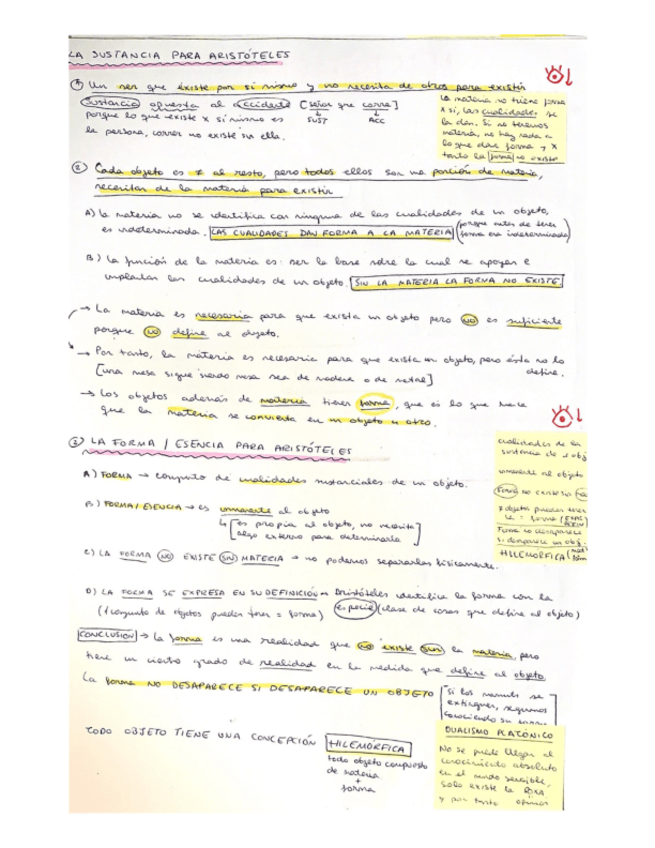 LA SUSTANCIA PARA ARISTÓTELES
① Un ser que existe por si mismo y no necesita de otros para existir
Sustancia opuesta al accidente [Señor que corre]
SUST ACC
porque lo que existe x si mismo es
la persona, correr no existe sin ella.
La materia no tiene forma
x sí, las cualidades se
la dan. Si no tenemos
materia, no hay nada a
lo que dar forma y x
tanto la forma no existe
② Cada objeto es ≠ al resto, pero todos ellos son una porción de materia,
necesitan de la materia para existir
A) La materia no se identifica con ninguna de las cualidades de un objeto,
es indeterminada. LAS CUALIDADES DAN FORMA A LA MATERIA (porque antes de tener
forma era indeterminada)
B) La función de la materia es: ser la base sobre la cual se apoyan e
implantan las cualidades de un objeto. SIN LA MATERIA LA FORMA NO EXISTE
→ La materia es necesaria para que exista un objeto pero NO es suficiente
porque NO define al objeto.
→ Por tanto, la materia es necesaria para que exista un objeto, pero ésta no lo
define.
[una mesa sigue siendo mesa sea de madera o de metal]
→ Los objetos además de materia tienen forma, que es lo que hace
que la materia se convierta en un objeto u otro.
③ LA FORMA / ESENCIA PARA ARISTÓTELES
A) FORMA → conjunto de cualidades sustanciales de un objeto.
B) FORMA/ESENCIA → es inmanente al objeto
↳ [es propia al objeto, no necesita
algo externo para determinarla]
C) LA FORMA NO EXISTE SIN MATERIA → no podemos separarlas físicamente.
cualidades de la
sustancia de 1 obj
inmanente al objeto
Forma no existe sin
≠ objetos pueden tener
la = forma
Forma no desaparece
si desaparece un obj.
HILEMÓRFICA
D) LA FORMA SE EXPRESA EN SU DEFINICIÓN → Aristóteles identifica la forma con la
(1 conjunto de objetos pueden tener = forma) especie (clase de cosas que define al objeto)
CONCLUSIÓN → La forma es una realidad que NO existe SIN la materia, pero
tiene un cierto grado de realidad en la medida que define al objeto.
La forma NO DESAPARECE SI DESAPARECE UN OBJETO [si los mamuts se
extinguen, seguimos
conociendo su forma]
TODO OBJETO TIENE UNA CONCEPCIÓN HILEMÓRFICA
todo objeto compuesto
de materia
+
forma
DUALISMO PLATÓNICO
No se puede llegar al
conocimiento absoluto
en el mundo sensible,
solo existe la DOXA
y por tanto